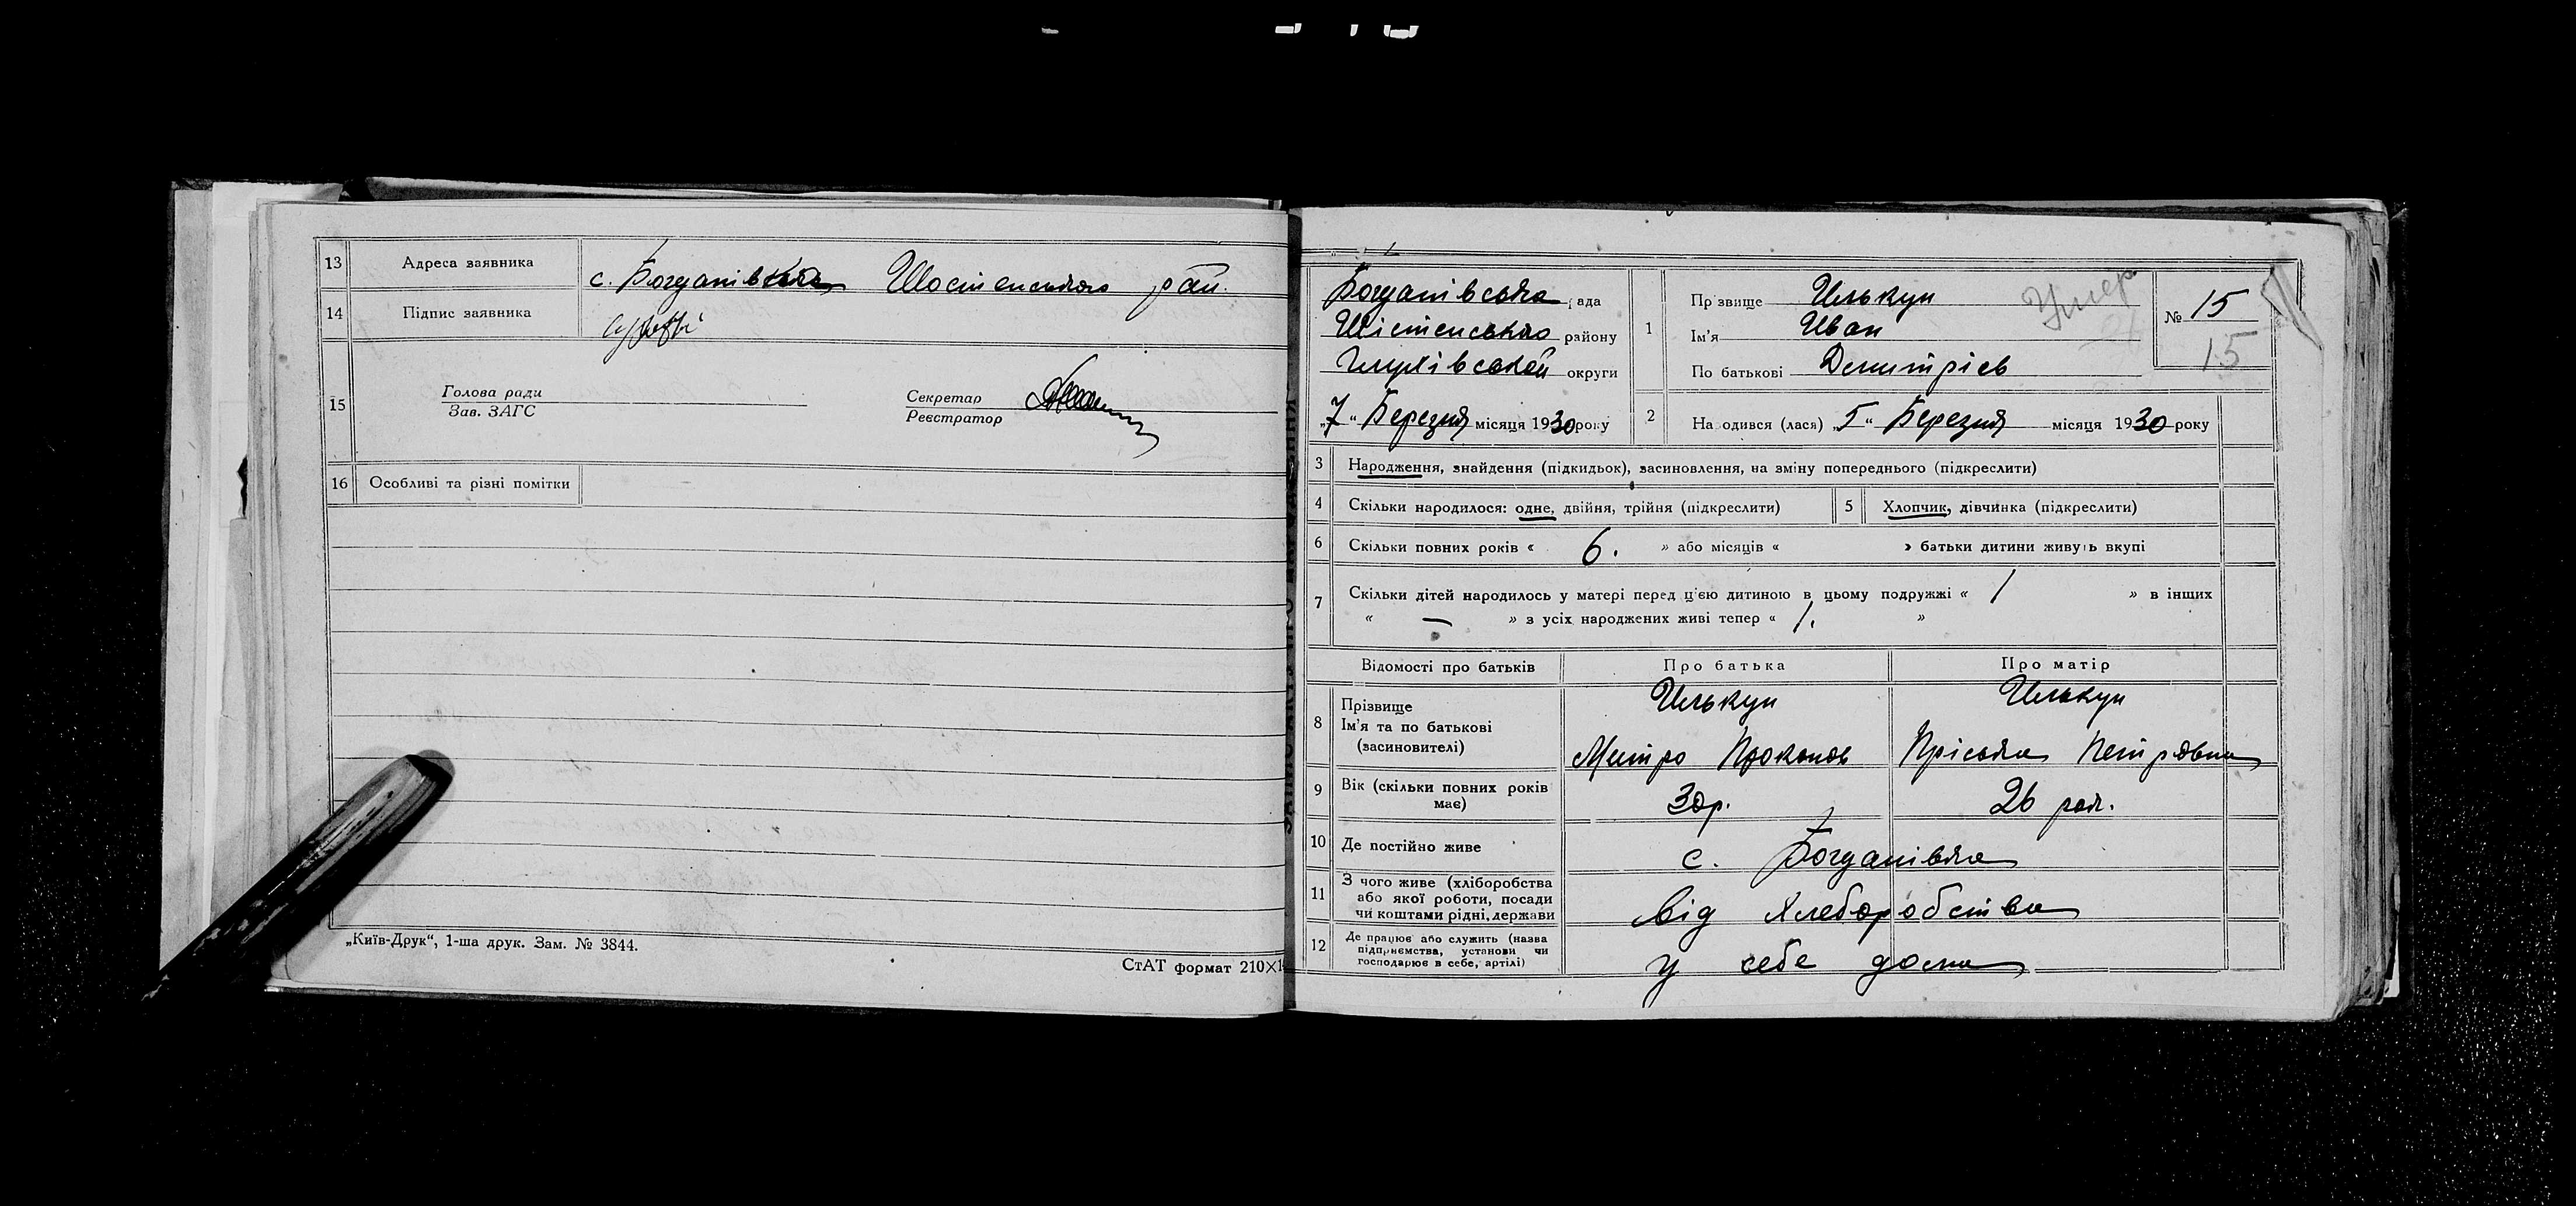 13 Адреса заявника с. Богданівка Шостенського рай.
14 Підпис заявника
15 Голова ради
Зав. ЗАГС
Секретар
Реєстратор
16 Особливі та різні помітки
„Київ-Друк“, 1-ша друк. Зам. № 3844.
СтАТ формат 210×1
Богданівська рада
Шістенського району
Глухівської округи
„7“ Березня місяця 1930 року
1 Прізвище Илькун
Ім'я Иван
По батькові Демитрієв
Умер
№ 15
15
2 Народився (лася) „5“ Березня місяця 1930 року
3 Народження, знайдення (підкидьок), засиновлення, на зміну попереднього (підкреслити)
4 Скільки народилося: одне, двійня, трійня (підкреслити) 5 Хлопчик, дівчинка (підкреслити)
6 Скільки повних років « 6. » або місяців « » батьки дитини живуть вкупі
7 Скільки дітей народилось у матері перед ц'єю дитиною в цьому подружжі « 1 » в інших
« — » з усіх народжених живі тепер « 1. »
Відомості про батьків Про батька Про матір
8 Прізвище
Ім'я та по батькові
(засиновителі)
Илькун
Митро Прокопов
Илькун
Пріська Петровна
9 Вік (скільки повних років
має)
30р.
26 рок.
10 Де постійно живе с. Богданівка
11 З чого живе (хліборобства
або якої роботи, посади
чи коштами рідні, держави
від хлеборобства
12 Де працює або служить (назва
підприємства, установи чи
господарює в себе, артілі)
у себе дома